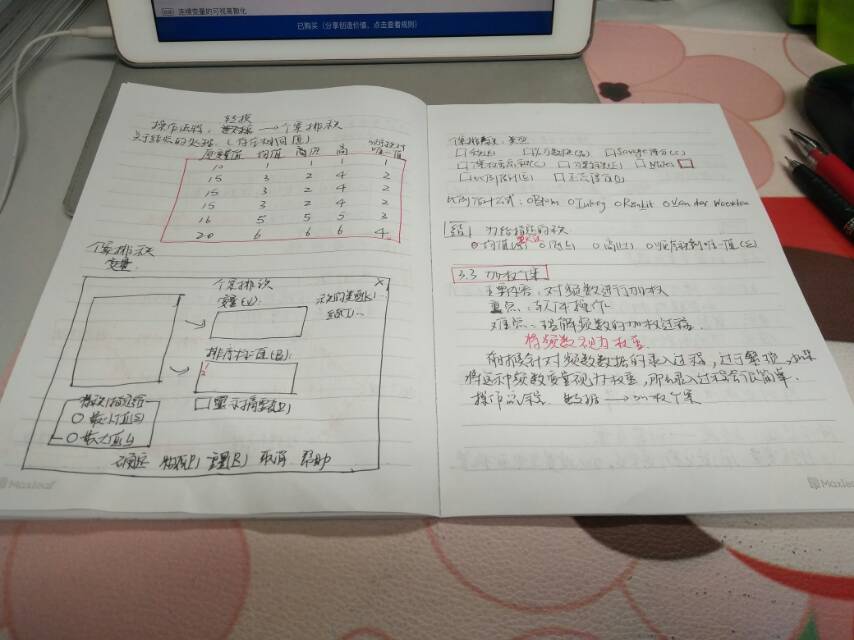 连续变量的可视离散化
已购买（分享创造价值，点击查看规则）
转换
操作流程： → 个案排秩
关于结的处理（存在相同值）
原数值 均值 低 高 顺序秩到唯一值
10 1 1 1 1
15 3 2 4 2
15 3 2 4 2
15 3 2 4 2
16 5 5 5 3
20 6 6 6 4
个案排秩
变量
个案排秩 ×
变量(V):
结(T)...
排序标准(B):
显示摘要表(D)
最小值(S)
最大值(L)
确定 粘贴(P) 重置(R) 取消 帮助
个案排秩：类型
Savage得分(S)
Ntiles
正态得分(O)
比例估计公式：○Blom ○Tukey ○Rankit ○Van der Waerden
结
○均值(M) ○低(L) ○高(H) ○顺序秩到唯一值(S)
3.3 加权个案
主要内容：对频数进行加权
重点：具体操作
难点：理解频数的加权过程.
将频数视为权重
有根针对频数数据的录入过程，过于繁琐，如果
将这种频数变量视为权重，那么录入过程会很简单.
操作流程：数据 → 加权个案
Maxleaf
Maxleaf